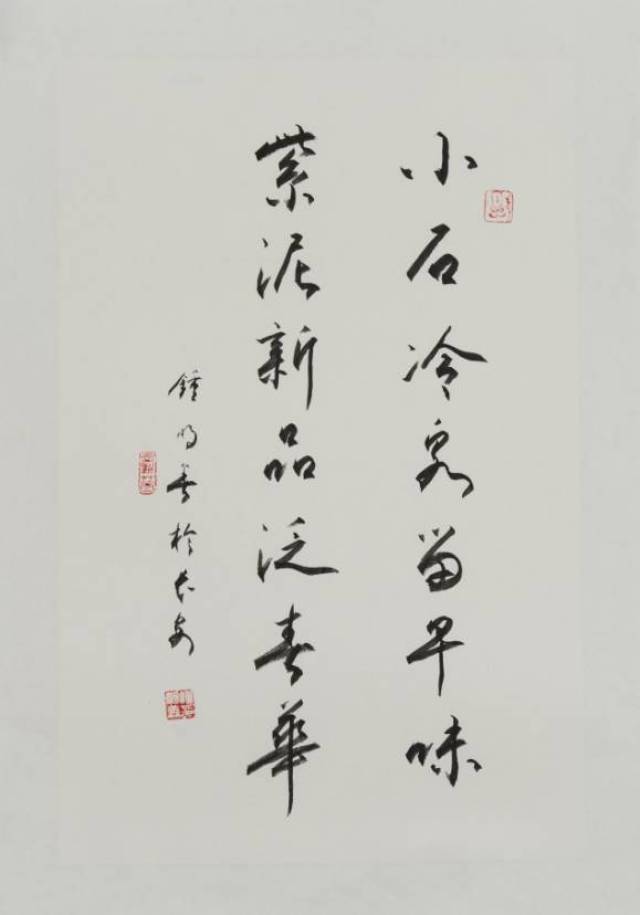 小石冷泉留早味
紫泥新品泛春華
鍾明善於长安